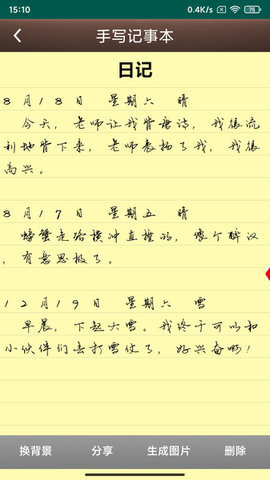 15:10
0.4K/s
手写记事本
日记
8月18日 星期六 晴
今天，老师让我背唐诗，我很流
利地背下来，老师表扬了我，我很
高兴。
8月17日 星期五 晴
螃蟹走路横冲直撞的，像个醉汉
，有意思极了。
12月19日 星期六 雪
早晨，下起大雪。我终于可以和
小伙伴们去打雪仗了，好兴奋啊！
换背景 分享 生成图片 删除